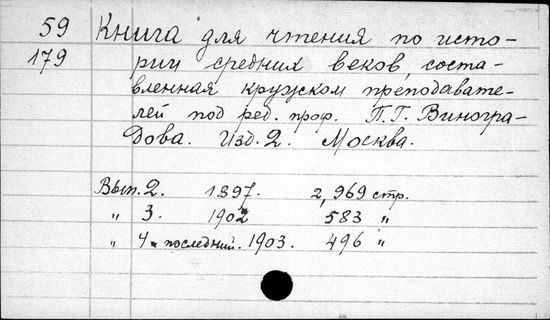 59 Книга для чтения по исто-
179 рии средних веков, соста-
вленная кружком преподавате-
лей под ред. проф. П.Г. Виногра-
дова. Изд. 2. Москва.
Вып. 2. 1897. 2, 969 стр.
„ 3. 1902 583 „
„ 4 - последний. 1903. 496 „